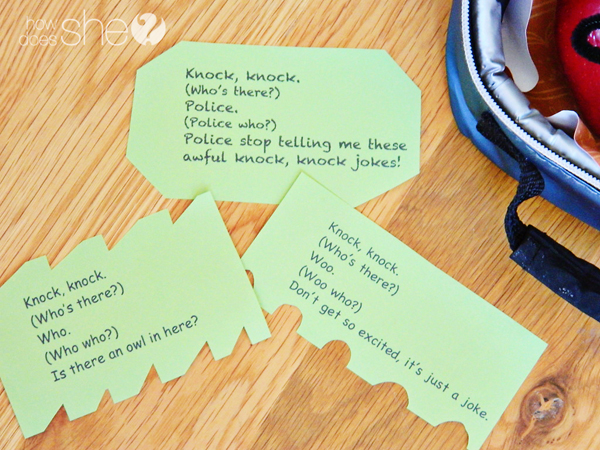 how
does she?
Knock, knock.
(Who's there?)
Police.
(Police who?)
Police stop telling me these
awful knock, knock jokes!
Knock, knock.
(Who's there?)
Who.
(Who who?)
Is there an owl in here?
Knock, knock.
(Who's there?)
Woo.
(Woo who?)
Don't get so excited, it's just a joke.